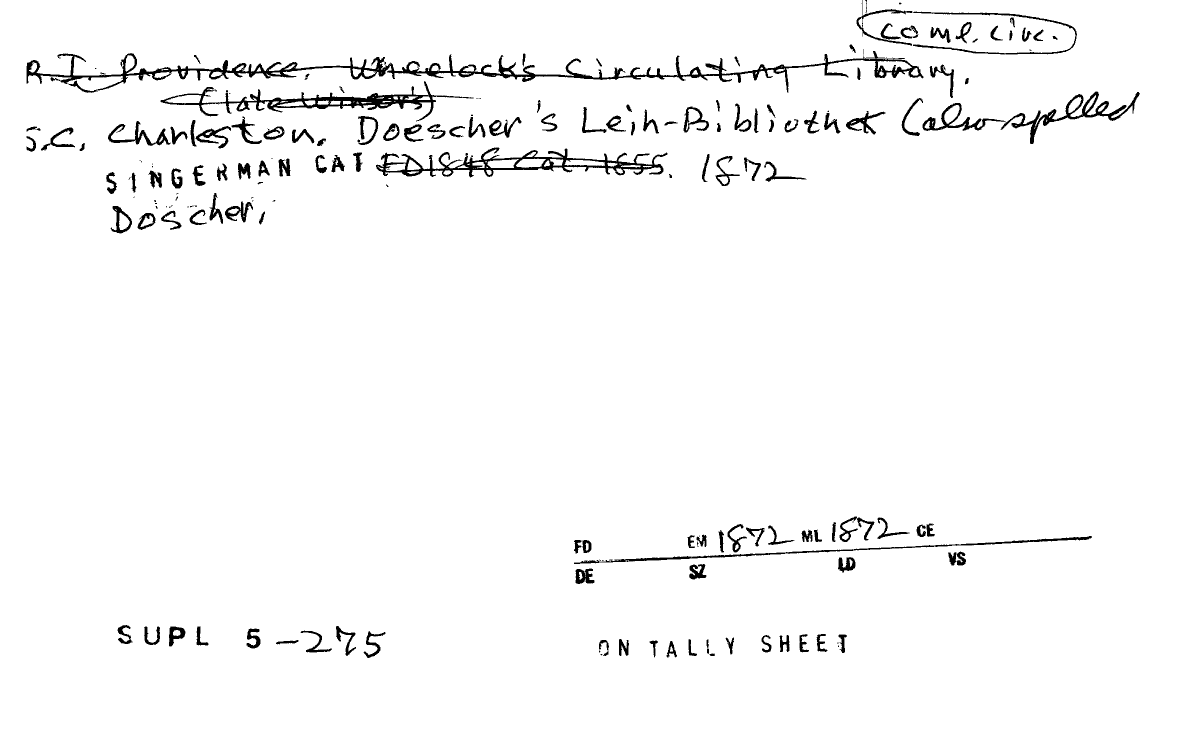 coml. circ.
R.I. Providence. Wheelock's Circulating Library.
(late Winsor's)
S.C. Charleston. Doescher's Leih-Bibliothek (also spelled
SINGERMAN CAT FD1848 Cat. 1855. 1872
Doscher.
FD EM 1872 ML 1872 CE
DE SZ LD VS
SUPL 5-275 ON TALLY SHEET